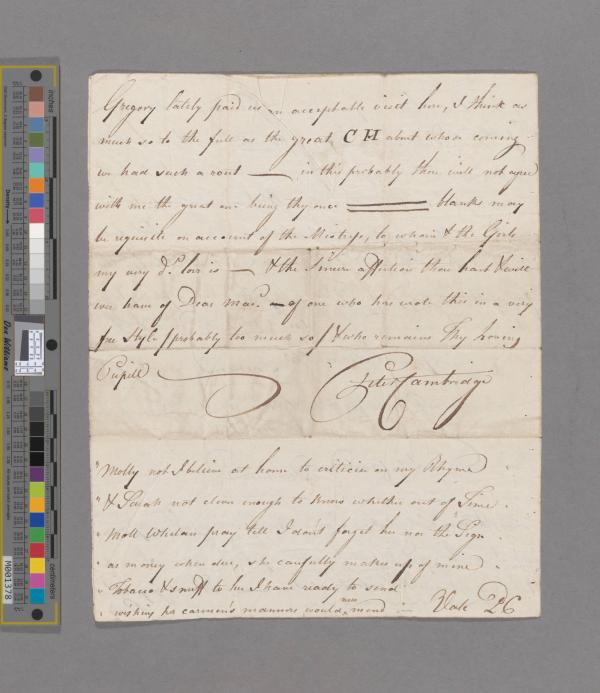 Gregory lately paid us an acceptable visit here, I think as
much so to the full as the great C H about whose coming
we had such a rout — in this probably thou will not agree
with me the great one being thy once ═══ blanks may
be requisite on account of the Mistress, to whom & the Girls
my very dr. love is — & the sincere affection thou hast & will
ever have of Dear Mac. — of one who has wrote this in a very
free style (probably too much so) & who remains Thy loving
Pupill Peter Cambridge
" Molly not I believe at home to criticise on my Rhyme
" & Sarah not clean enough to know whether out of Time
" Moll Whelan pray tell I don't forget her nor the Pigs
" as money when due, she carefully makes up of mine
" Tobacco & snuff to her I have ready to send
" wishing her carmen's manners would, mend — Vale PC
inches
centimetres
Don Williams
M001378